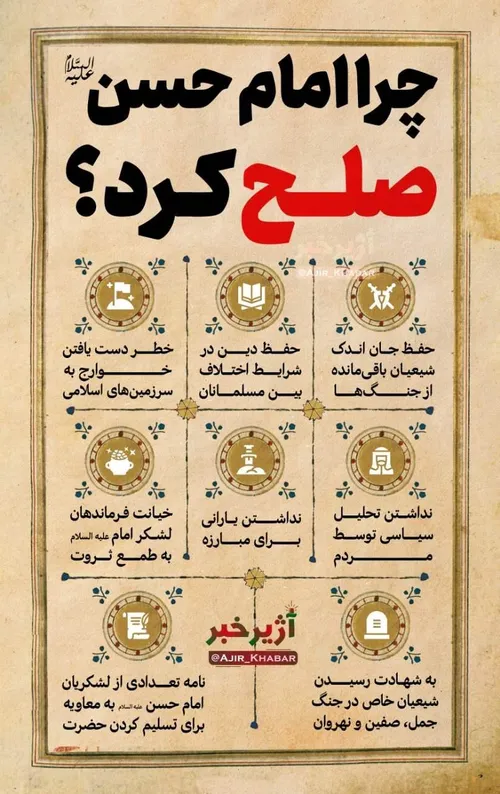 چرا امام حسن علیه السلام
صلح کرد؟
آژیر خبر
@AJIR_KHABAR
حفظ جان اندک
شیعیان باقی‌مانده
از جنگ‌ها
حفظ دین در
شرایط اختلاف
بین مسلمانان
خطر دست یافتن
خوارج به
سرزمین‌های اسلامی
نداشتن تحلیل
سیاسی توسط
مردم
نداشتن یارانی
برای مبارزه
خیانت فرماندهان
لشکر امام علیه السلام
به طمع ثروت
به شهادت رسیدن
شیعیان خاص در جنگ
جمل، صفین و نهروان
آژیر خبر
@AJIR_KHABAR
نامه تعدادی از لشکریان
امام حسن علیه السلام به معاویه
برای تسلیم کردن حضرت